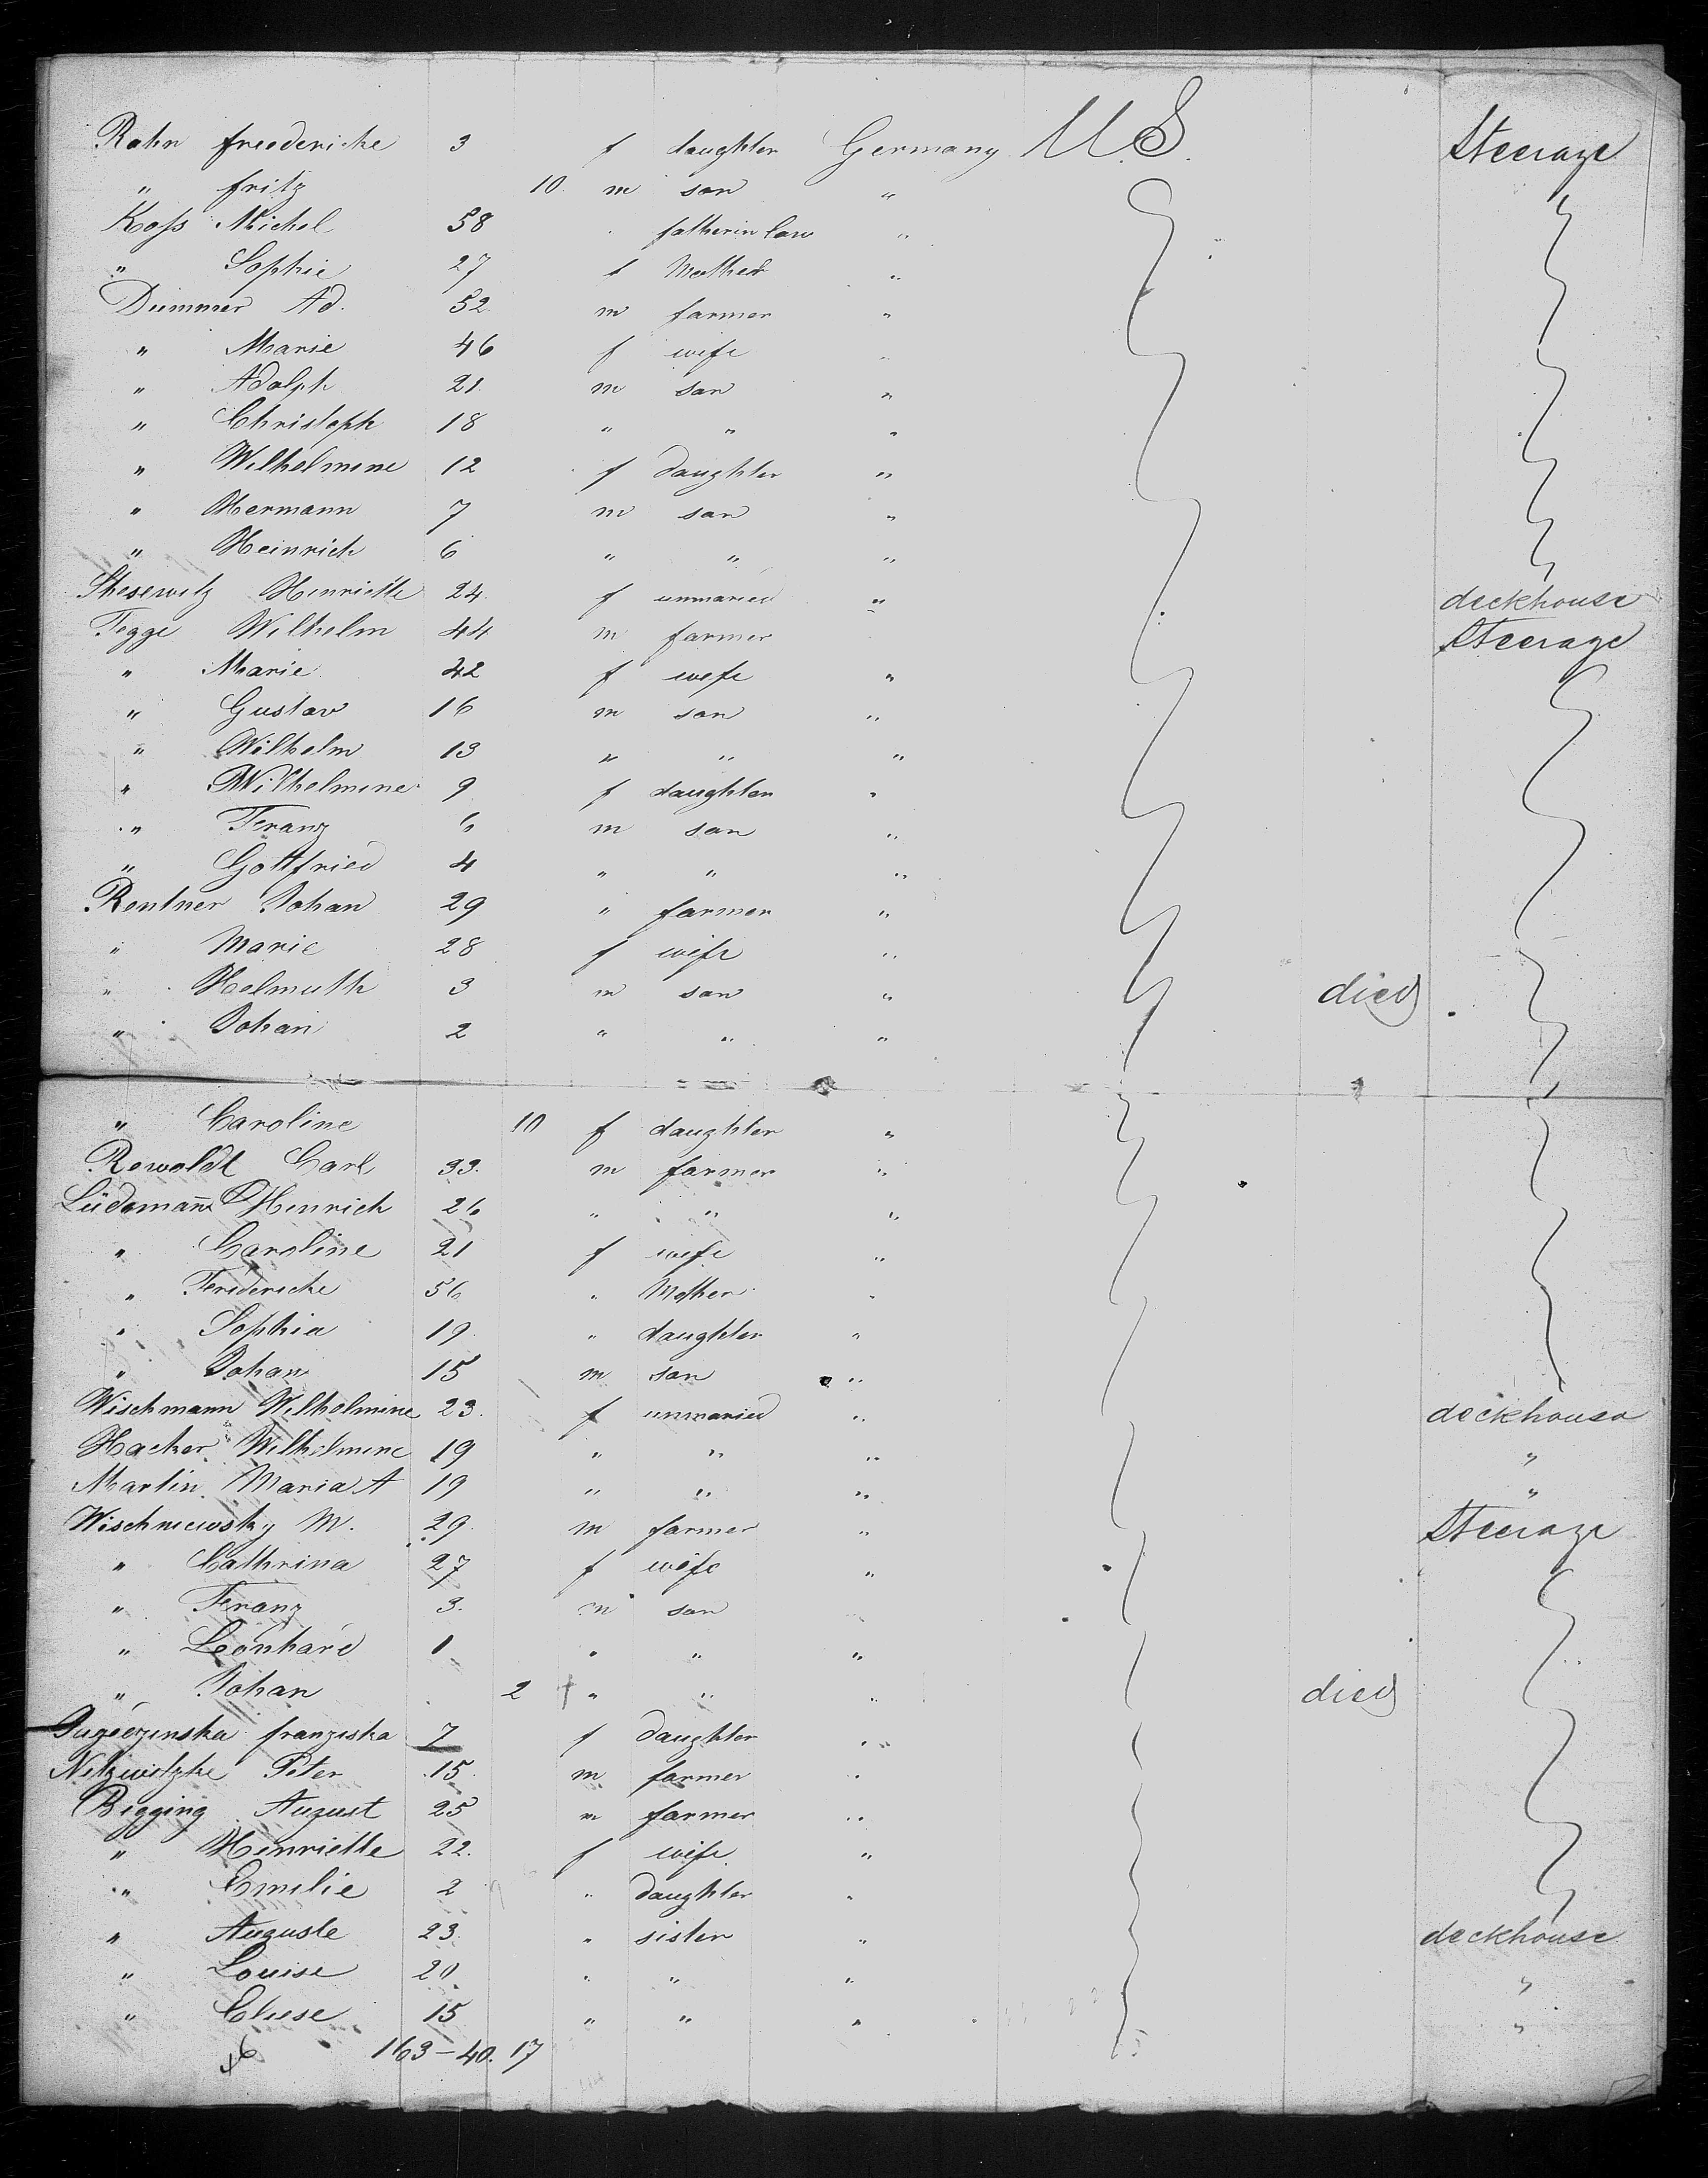 Rahn freedericke 3 f daughter Germany U.S. Steerage
" fritz 10. m son "
Koss Michel 58 father in law "
" Sophie 27 f Mother "
Dummer Ad. 52 m farmer "
" Marie 46 f wife "
" Adolph 21. m son "
" Christoph 18 " " "
" Wilhelmine 12 f daughter "
" Hermann 7 m son "
" Heinrich 6 " " "
Henriette 24 f unmaried " deckhouse
Tegge Wilhelm 44 m farmer Steerage
" Marie 42 f wefe "
" Gustav 16 m son "
" Wilhelm 13 " " "
" Wilhelmine 9 f daughter "
" Franz 6 m son "
" Gottfried 4 " " "
Rentner Johan 29 " farmer "
" Marie 28 f wife "
" Helmuth 3 m son " died
" Johan 2 " " "
" Caroline 10 f daughter "
Rewoldt Carl 33. m farmer "
Lüdemann Henrich 26 " " "
" Caroline 21 f wefe "
" Fredericke 56 " Mother "
" Sophia 19 " daughter "
" Johan 15 m son "
Wischmann Wilhelmine 23. f unmaried " deckhouse
Hacker Wilhelmine 19 " " " "
Martin Maria A 19 " " " "
Wischniewsky M. 29 m farmer " Steerage
" Cathrina 27 f wife "
" Franz 3. m son
" Leonhard 1 " " "
" Johan 2 † " " " died
franziska 7 f daughter "
Peter 15 m farmer "
Bigging August 25 m farmer "
" Henriette 22. f wife "
" Emilie 2 " daughter "
" Auguste 23. " sister " deckhouse
" Louise 20 " " " "
" Eliese 15 " " " "
163-40. 17